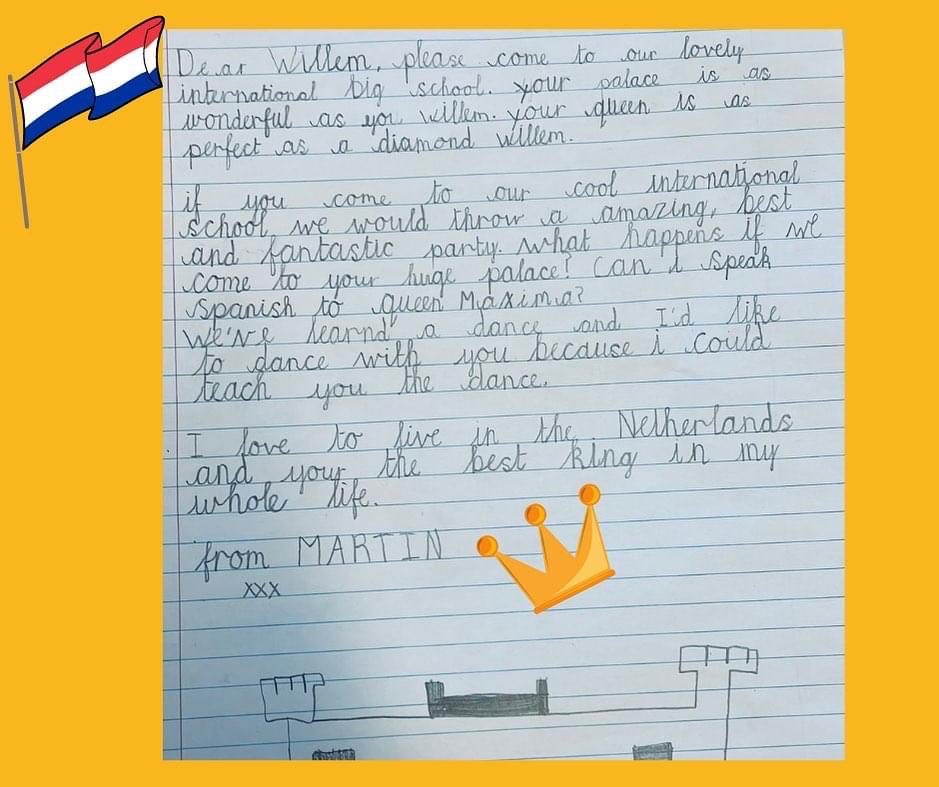 Dear Willem, please come to our lovely
international big school. your palace is as
wonderful as you willem. your queen is as
perfect as a diamond willem.
if you come to our cool international
school, we would throw a amazing, best
and fantastic party. what happens if we
come to your huge palace! Can i speak
spanish to queen Máxima?
We've learnd a dance and I'd like
to dance with you because i could
teach you the dance.
I love to live in the Netherlands
and your the best king in my
whole life.
from MARTIN
xxx